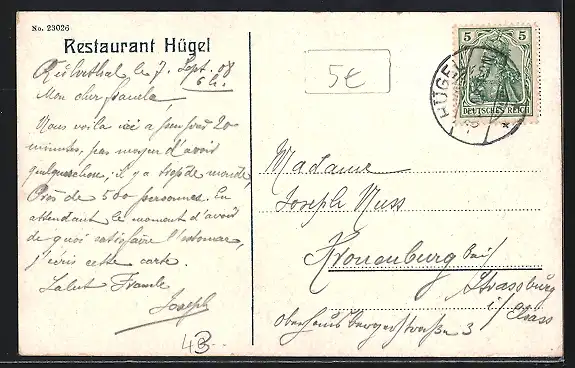 No. 23026
Restaurant Hügel
Rührthal, le 7. Sept. 08
6 h.
Mon cher
Nous voilà ici à peu près 20
minutes, pas moyen d'avoir
quelquechose, il y a trop de monde,
Près de 500 personnes. En
attendant le moment d'avoir
de quoi satisfaire l'estomac,
j'écris cette carte.
Salut
Joseph
43
5€
5 5
DEUTSCHES REICH
HÜGEL
Madame
Joseph Nuss
Kronenburg bei
Strassburg
i/ Elsass
Oberhausbergerstraße 3